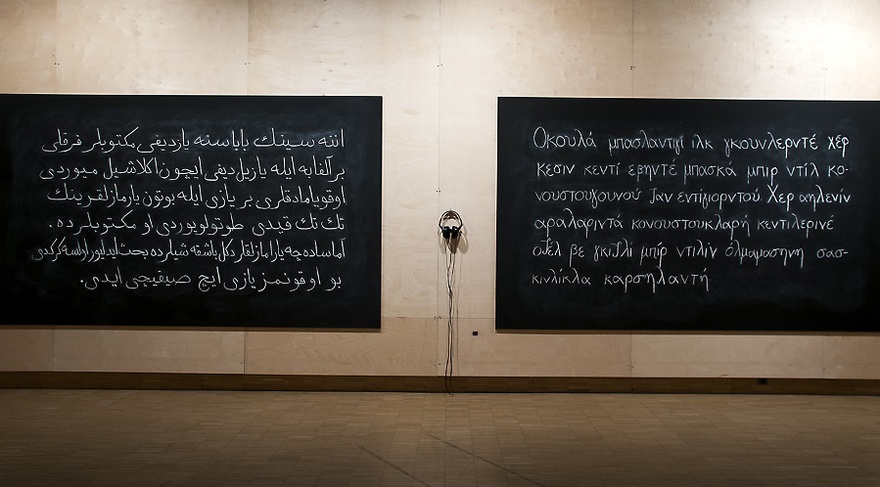 اننه سينك باباسنه يازديغى مكتوبلر فرقلى
بر آلفابه ايله يازيلديغى ايچون آكلاشيل ميوردى
اوقويامادقلرى بر يازى ايله بوتون يارمازلقرينك
تك تك قيدى طوتولويوردى او مكتوبلرده .
آماساده چه يارامازلقلر دكل باشقه شيلرده بحث ايدليور اولسه كركدى
بو اوقونمز يازى ايچ صيقيجى ايدى.
Οκουλά μπασλαντιγί ιλκ γκουνλερντέ χέρ
κεσιν κεντί εβηντέ μπασκά μπιρ ντίλ κο-
νουστουγουνού Ιαν εντίγιορντού Χερ αηλενίν
αραλαριντά κονουστουκλαρή κεντιλερινέ
οζέλ βε γκιζλί μπίρ ντιλίν όλμαμασηνη σασ-
κινλίκλα καρσηλαντή